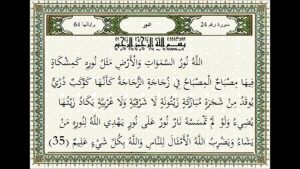 سورة رقم 24 النور وآياتها 64
بِسْمِ اللَّهِ الرَّحْمَنِ الرَّحِيمِ
اللَّهُ نُورُ السَّمَوَاتِ وَالْأَرْضِ مَثَلُ نُورِهِ كَمِشْكَاةٍ
فِيهَا مِصْبَاحٌ الْمِصْبَاحُ فِي زُجَاجَةٍ الزُّجَاجَةُ كَأَنَّهَا كَوْكَبٌ دُرِّيٌّ
يُوقَدُ مِنْ شَجَرَةٍ مُبَارَكَةٍ زَيْتُونَةٍ لَا شَرْقِيَّةٍ وَلَا غَرْبِيَّةٍ يَكَادُ زَيْتُهَا
يُضِيءُ وَلَوْ لَمْ تَمْسَسْهُ نَارٌ نُورٌ عَلَى نُورٍ يَهْدِي اللَّهُ لِنُورِهِ مَنْ
يَشَاءُ وَيَضْرِبُ اللَّهُ الْأَمْثَالَ لِلنَّاسِ وَاللَّهُ بِكُلِّ شَيْءٍ عَلِيمٌ (35)